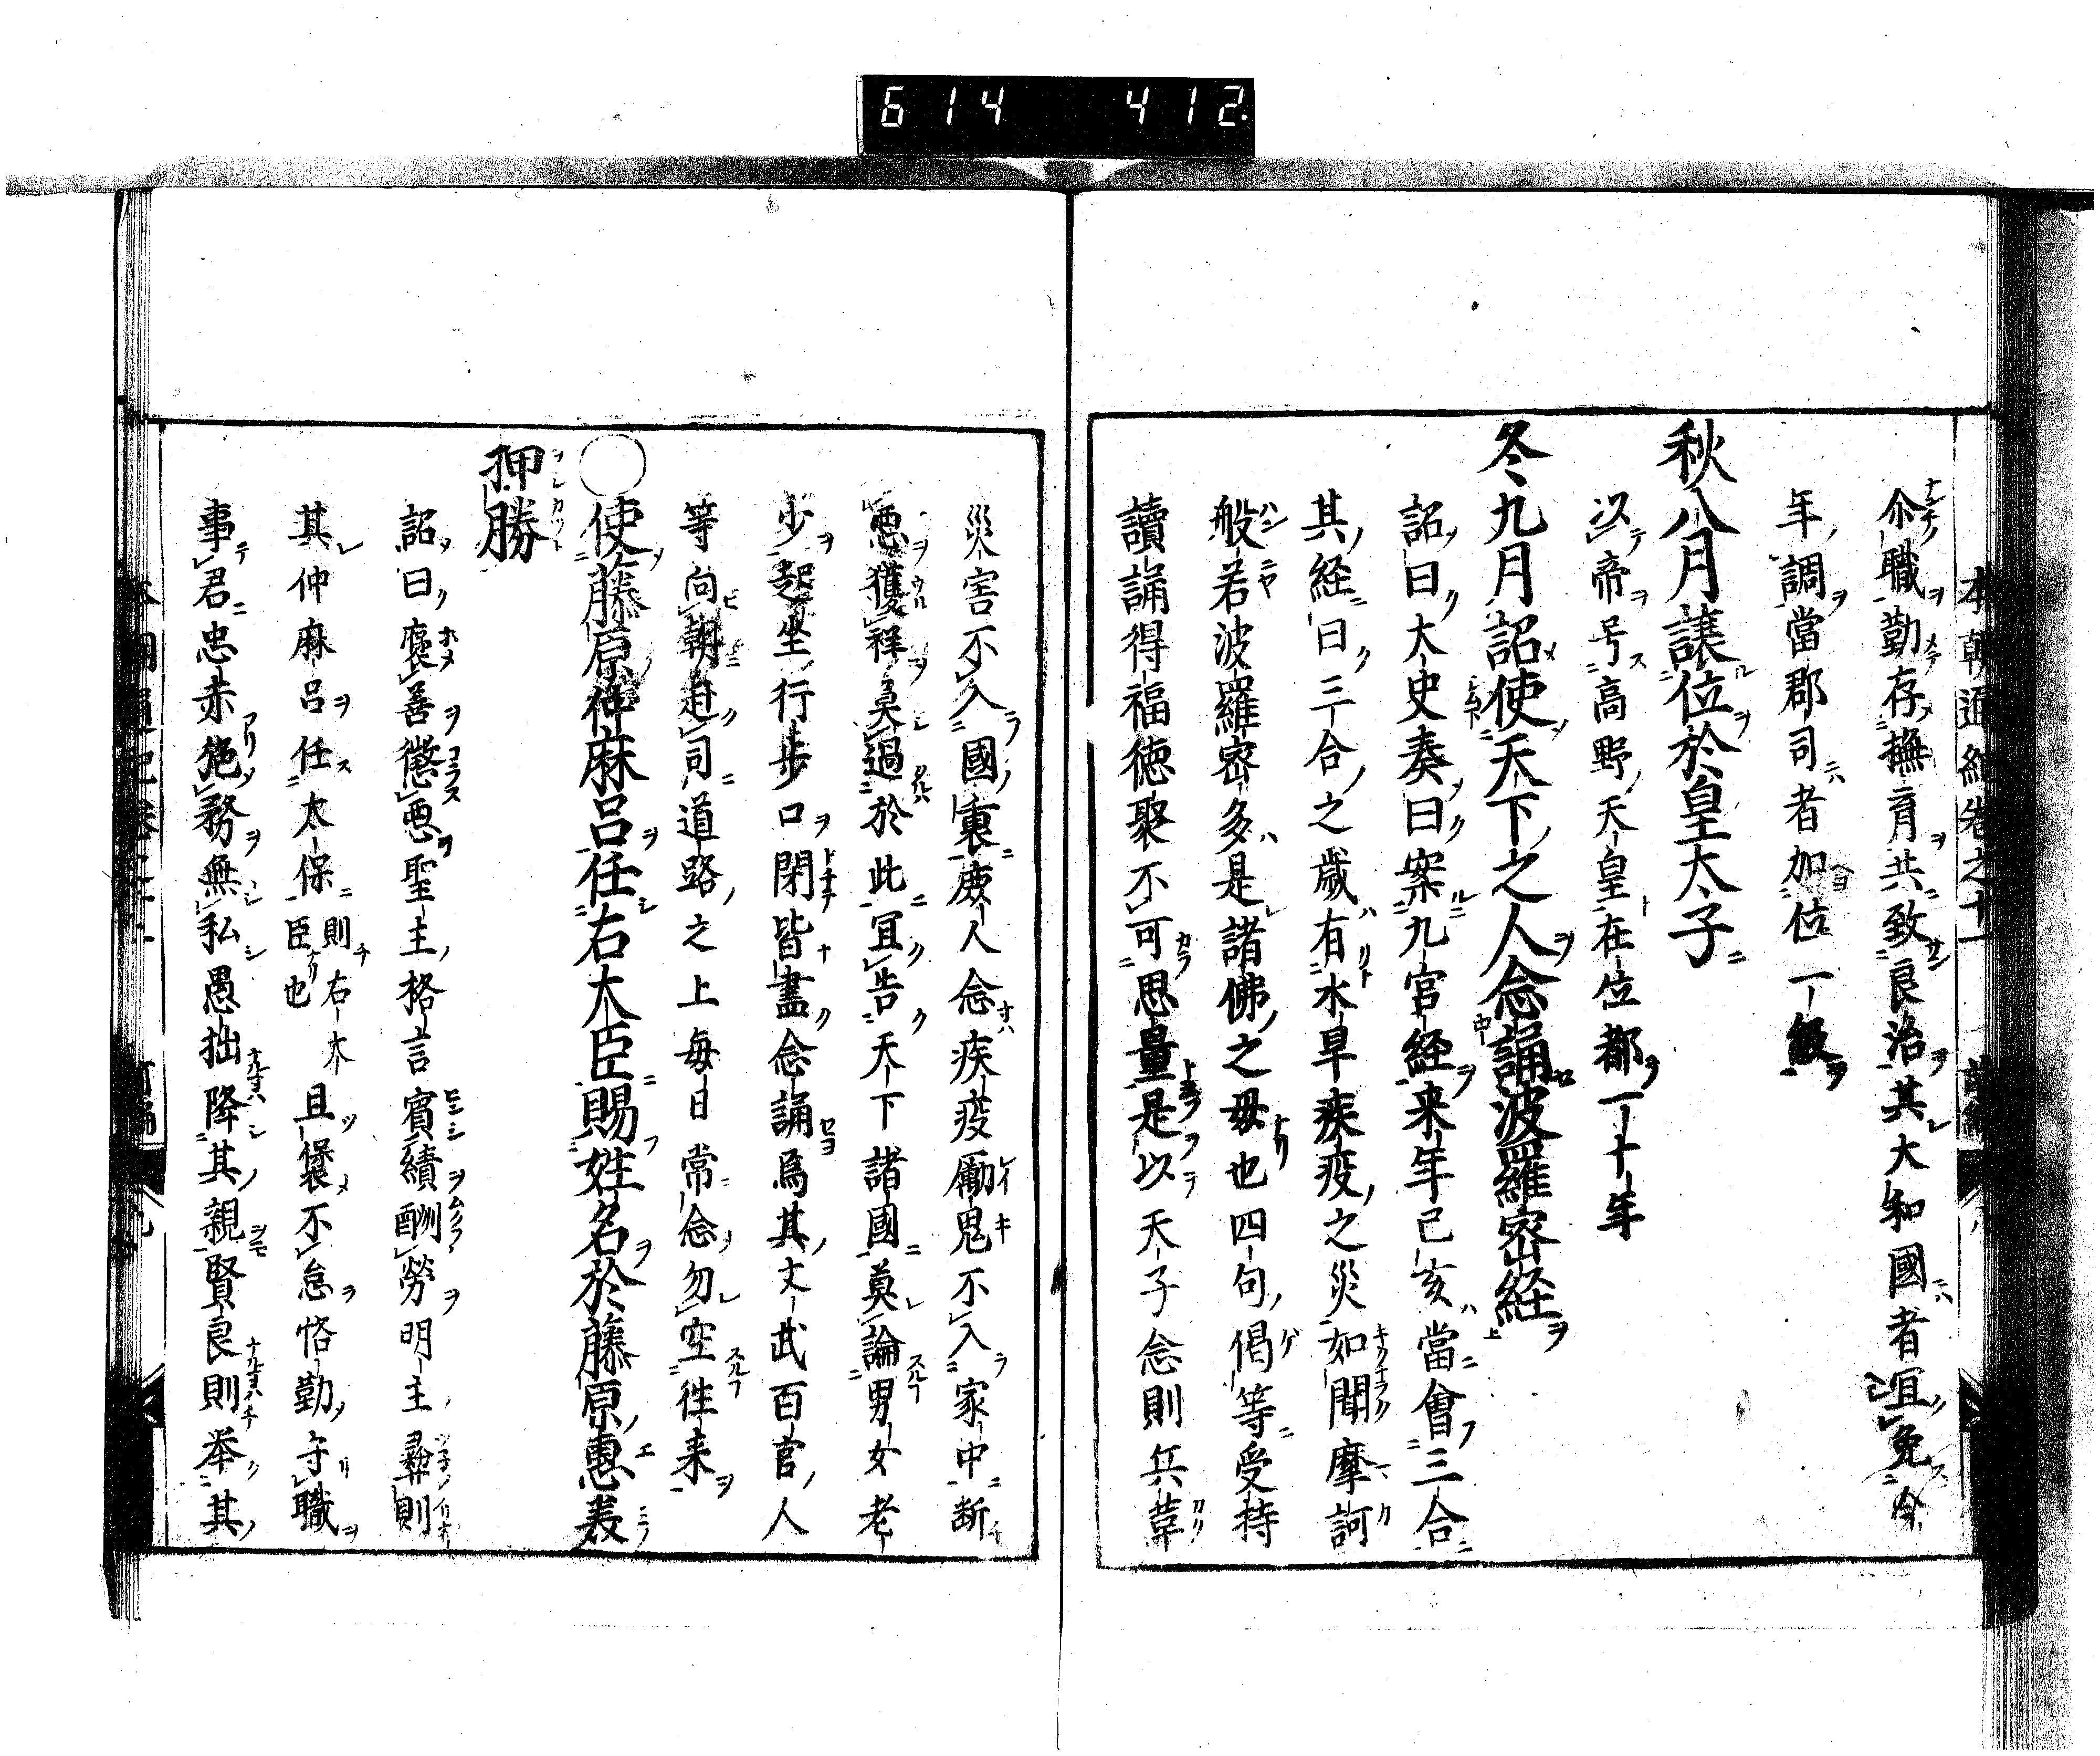 614 412.
尒職勤存撫育共致良治其大和國者宜免今
年調當郡司者加位一級
秋八月譲位於皇太子
以帝号高野天皇在位都一十年
冬九月詔使天下之人念誦波羅密経
詔曰大史奏曰案九宮経来年己亥當會三合
其経曰三合之歲有水旱疾疫之災如聞摩訶
般若波羅密多是諸佛之母也四句偈等受持
讀誦得福徳聚不可思量是以天子念則兵革
災害不入國裏庶人念疾疫勵鬼不入家中断
悪獲祥莫過於此宜告天下諸國莫論男女老
少起坐行步口閉皆盡念誦爲其文武百官人
等向朝赴司道路之上毎日常念勿空徃来
○使藤原仲麻呂任右大臣賜姓名於藤原惠美
押勝
詔曰褒善懲悪聖主格言賓績酬勞明主彝則
其仲麻呂任太保則右大臣也且褒不怠恪勤守職
事君忠赤施務無私愚拙降其親賢良則举其